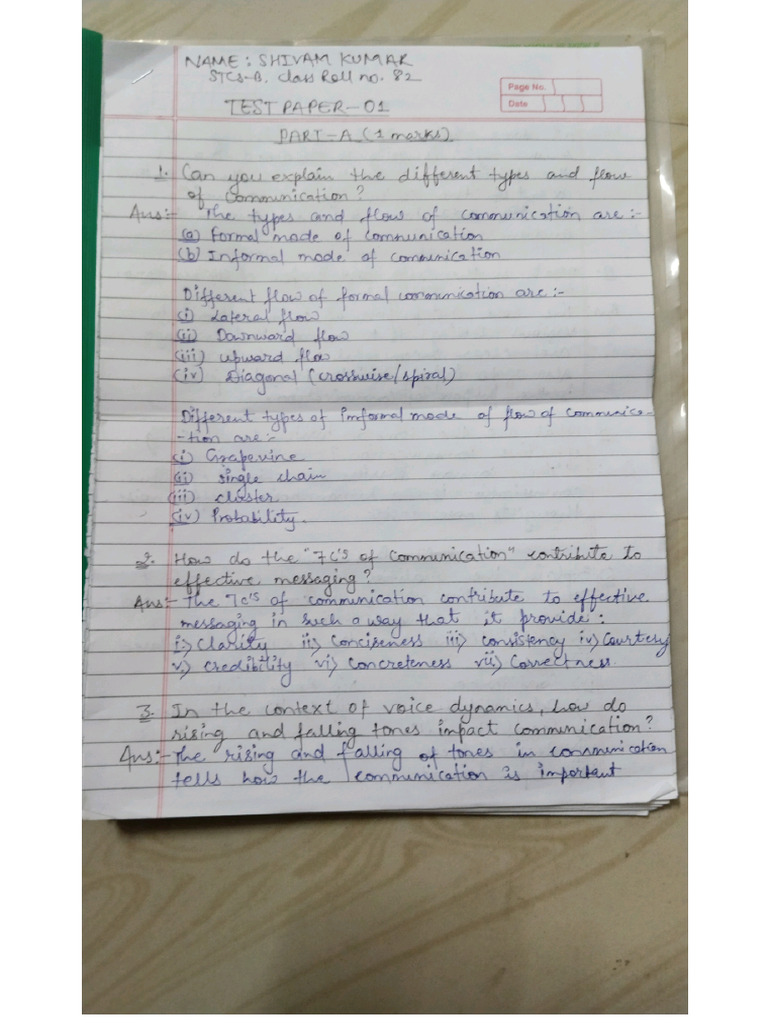 NAME: SHIVAM KUMAR
STCS-B. Class Roll no. 82
Page No.
Date
TEST PAPER-01
PART-A (1 marks)
1. Can you explain the different types and flow
of communication?
Ans:- The types and flow of communication are:-
(a) Formal mode of communication
(b) Informal mode of communication
Different flow of formal communication are:-
(i) Lateral flow
(ii) Downward flow
(iii) upward flow
(iv) Diagonal (crosswise/spiral)
Different types of Imformal mode of flow of communica-
-tion are:-
(i) Grapevine
(ii) single chain
(iii) cluster
(iv) Probability.
2. How do the "7C's of Communication" contribute to
effective messaging?
Ans:- The 7c's of communication contribute to effective
messaging in such a way that it provide:
i) Clarity ii) Conciseness iii) consistency iv) Courtesy
v) credibility vi) Concreteness vii) Correctness.
3. In the context of voice dynamics, how do
rising and falling tones impact communication?
Ans:- The rising and falling of tones in communication
tells how the communication is important